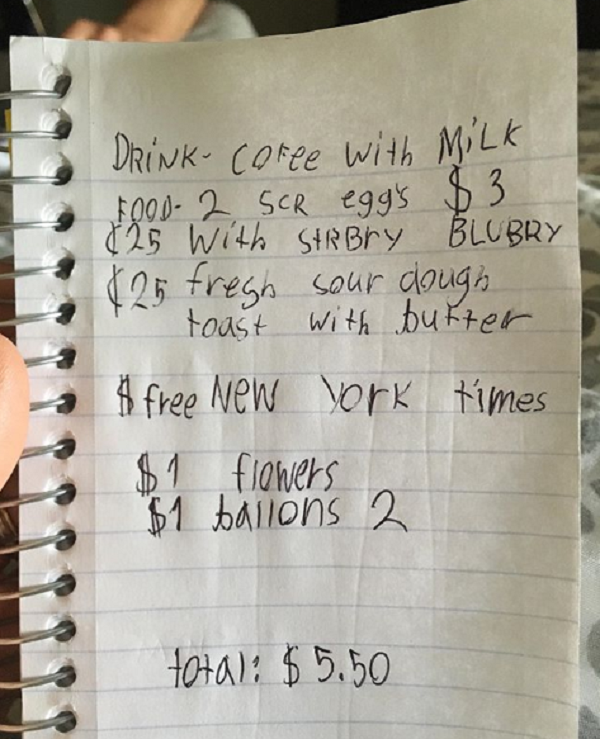 DRiNK- COFee with MiLK
FOOD- 2 SCR egg's $3
¢25 with StRBry BLUBRY
¢25 fresh sour dough
toast with butter
$ free NEW York times
$1 flowers
$1 ballons 2
total: $5.50